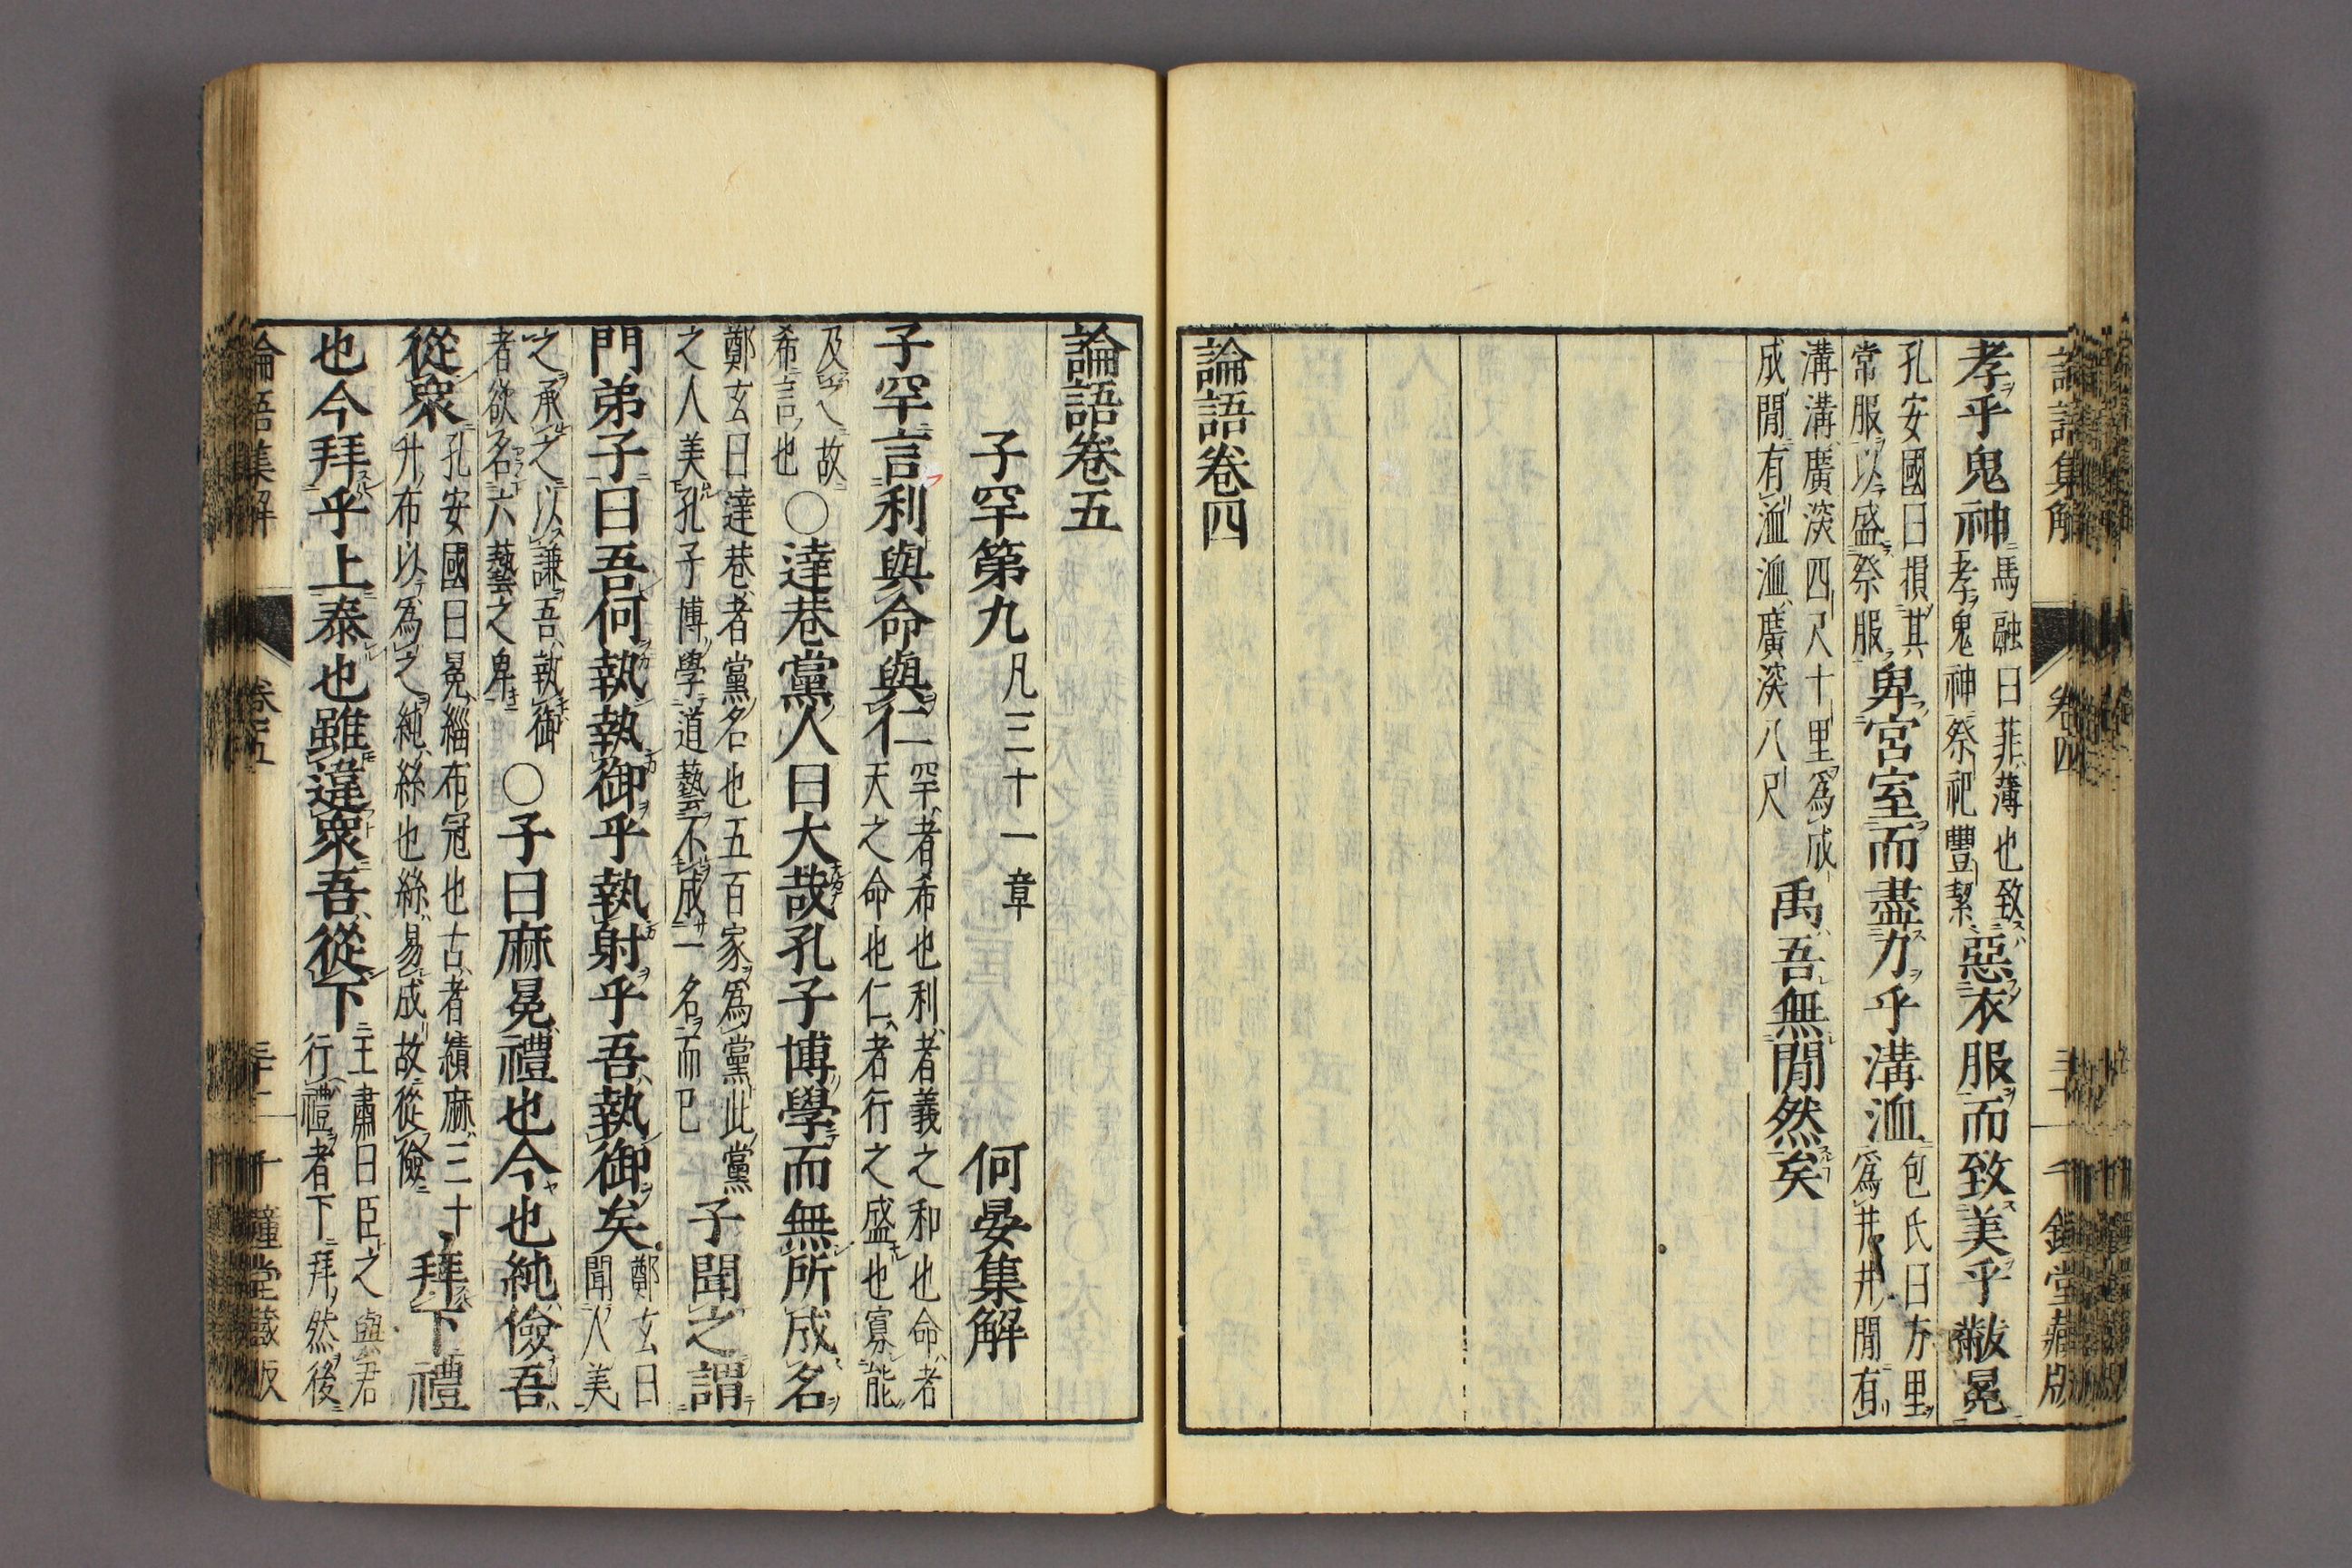 論語集解 卷四 千鍾堂藏版
孝乎鬼神
馬融曰菲薄也致
孝鬼神祭祀豐絜
惡衣服而致美乎黻冕
孔安國曰損其
常服以盛祭服
卑宮室而盡力乎溝洫
包氏曰方里
爲井井閒有
溝溝廣深四尺十里爲成
成閒有洫洫廣深八尺
禹吾無閒然矣
論語卷四
論語卷五
子罕第九 凡三十一章 何晏集解
子罕言利與命與仁
罕者希也利者義之和也命者
天之命也仁者行之盛也寡能
及之故
希言也
○達巷黨人曰大哉孔子博學而無所成名
鄭玄曰達巷者黨名也五百家爲黨此黨
之人美孔子博學道藝不成一名而已
子聞之謂
門弟子曰吾何執執御乎執射乎吾執御矣
鄭玄曰
聞人美
之承之以謙吾執御
者欲名六藝之卑
○子曰麻冕禮也今也純儉吾
從衆
孔安國曰冕緇布冠也古者績麻三十
升布以爲之純絲也絲易成故從儉
拜下禮
也今拜乎上泰也雖違衆吾從下
王肅曰臣之與君
行禮者下拜然後
論語集解 卷五 千鍾堂藏版